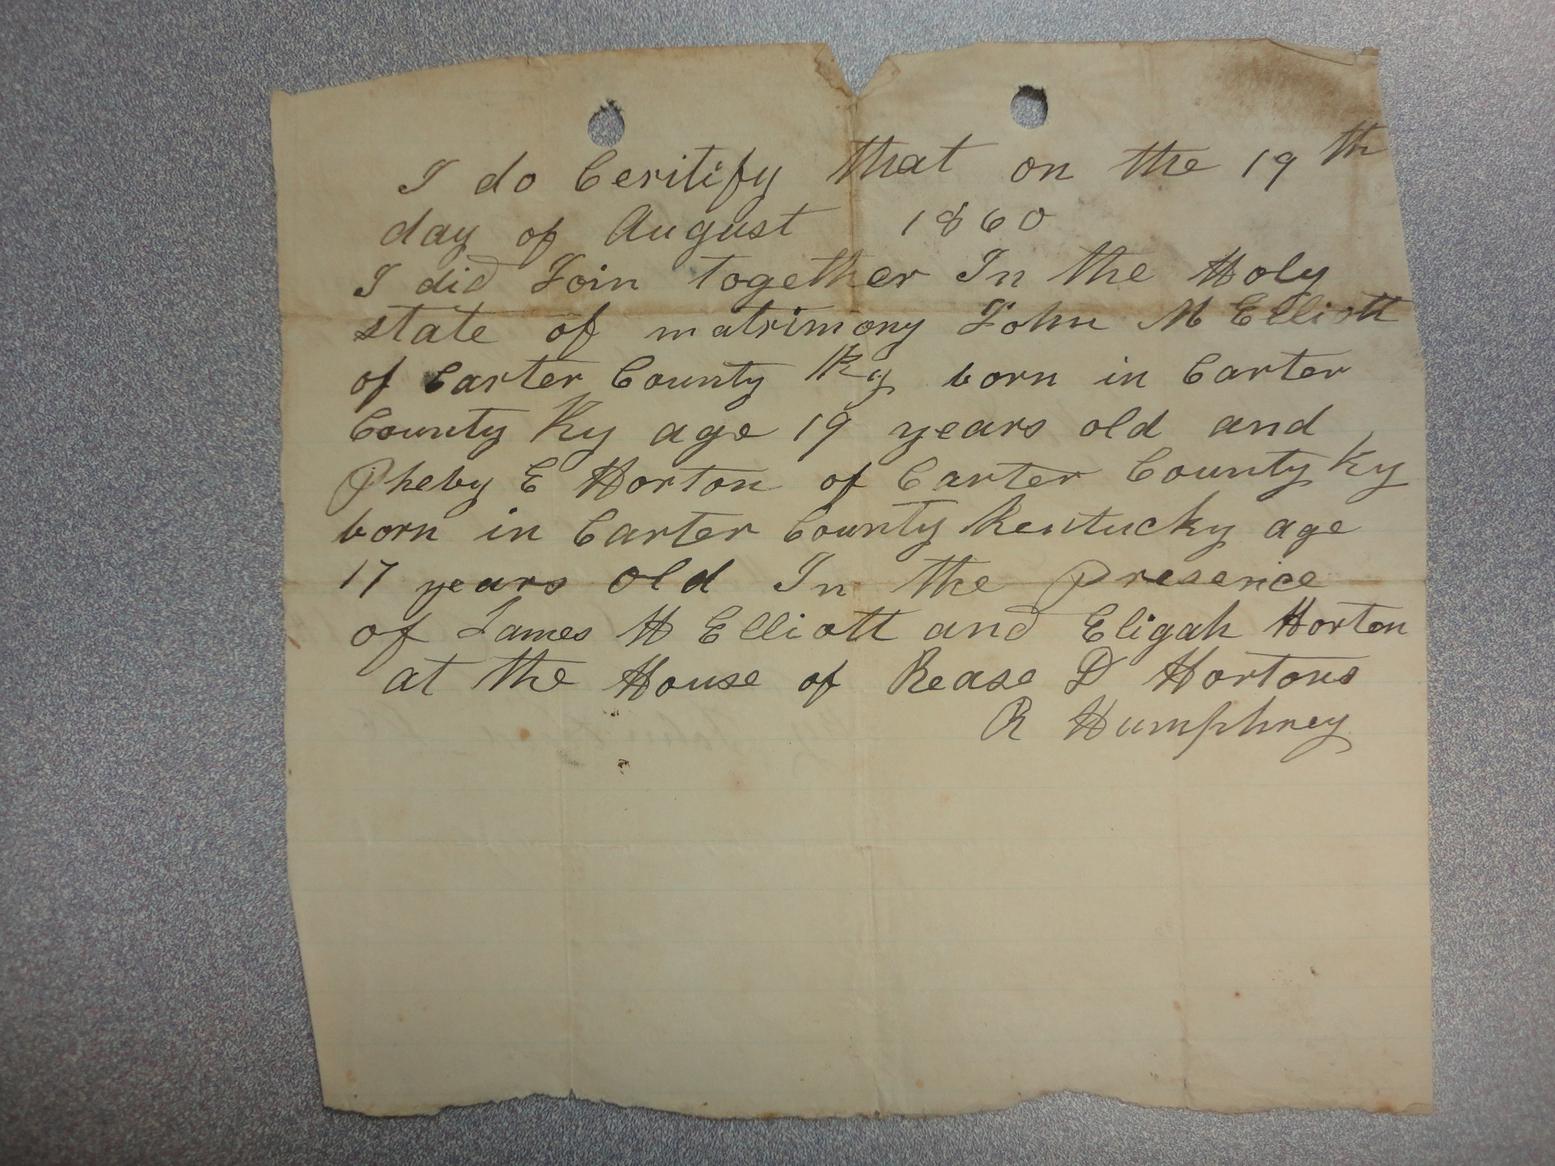 I do Ceritify that on the 19th
day of August 1860
I did Join together In the Holy
state of matrimony John M Elliott
of Carter County Ky born in Carter
County Ky age 19 years old and
Pheby E Horton of Carter County Ky
born in Carter County Kentucky age
17 years old In the Presence
of James H Elliott and Eligah Horton
at the House of Rease D Hortons
R Humphrey